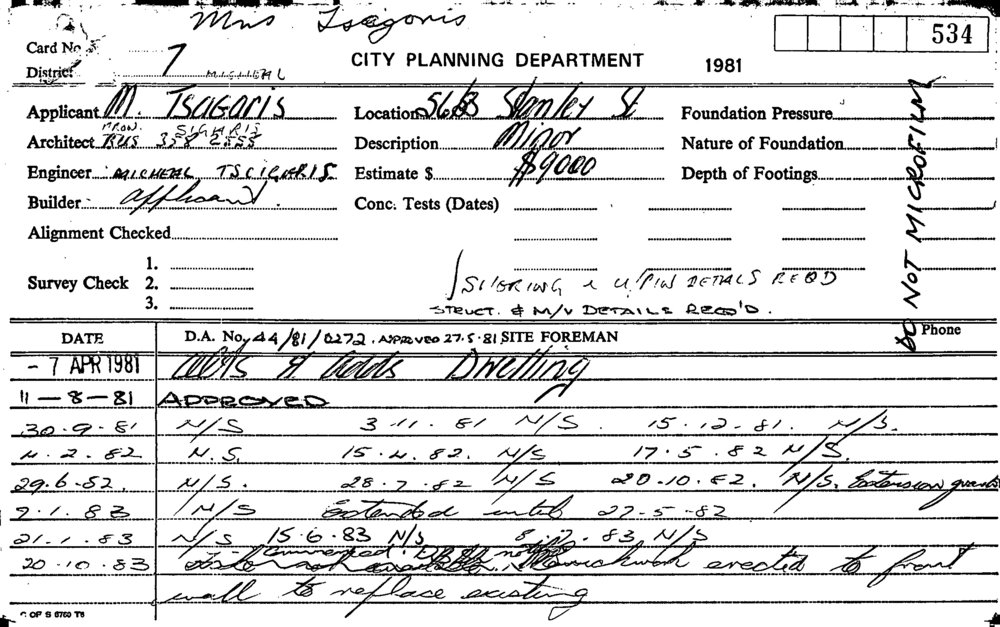 Mrs Tsagoris
534
Card No
District 7 MICHEAL
CITY PLANNING DEPARTMENT 1981
Applicant M. TSAGARIS Location Stanley St Foundation Pressure
Architect BUS 358 Description Minor Nature of Foundation
Engineer MICHEAL Estimate $ $9000 Depth of Footings
Builder applicant. Conc. Tests (Dates)
Alignment Checked
DO NOT MICROFILM
Survey Check 1.
2.
3.
SHORING & U/PIN DETAILS REQD
STRUCT. & M/V DETAILS REQ'D.
DATE D.A. No. 44/81/0272. APPROVED 27.5.81 SITE FOREMAN Phone
- 7 APR 1981 Alts & Adds Dwelling
11-8-81 APPROVED
30.9.81 N/S 3.11.81 N/S. 15.12.81. N/S.
4.2.82 N.S. 15.4.82. N/S 17.5.82 N/S.
29.6.82. N/S. 28.7.82 N/S 20.10.82. N/S. Extension
9.1.83 N/S Extended until 27-5-82
21.1.83 N/S 15.6.83 N/S 83 N/S
20.10.83 erected to front
wall to replace existing
C OP S 6760 T6